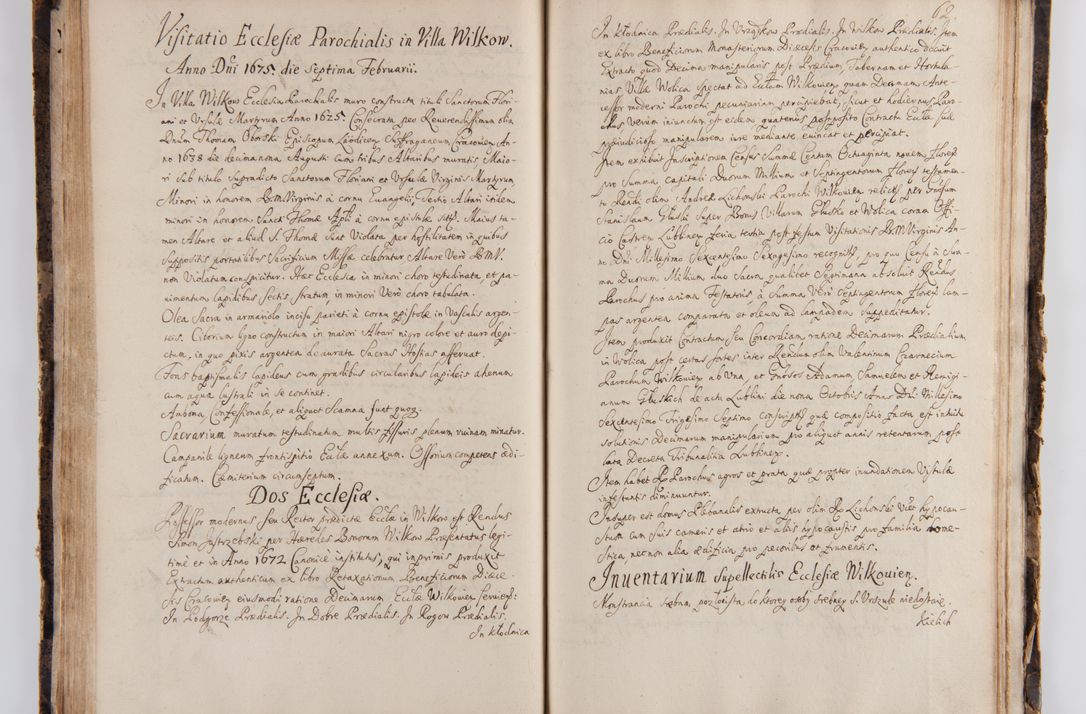 Visitatio Ecclesiæ Parochialis in Villa Wilkow.
Anno Dni 1675. die Septima Februarii.
In Villa Wilkow Ecclesia Parochialis muro constructa tituli Sanctorum Flori-
ani et Ursulæ Martyrum Anno 1625. Consecrata per Reverendissimum olim
Dnum Thomam Oborski Episcopum Laodicen Suffraganeum Cracovien An-
no 1638 die decimanona Augusti cum tribus Altaribus muratis Maio-
ri sub titulo supradicto Sanctorum Floriani et Ursulæ Virginis Martyrum,
Minori in honorem B.M.Virginis à cornu Euangelij, Tertio Altari itidem
minori in honorem Sancti Thomæ Apli à cornu epistolæ sitis. Maius ta-
men Altare et aliud S. Thomæ sunt Violata per hostilitatem in quibus
suppositis portatilibus Sacrificium Missæ celebratur Altare Verò B.M.V.
non Violatum conspicitur. Hæc Ecclesia in minori choro testudinata, et pa-
uimentum lapidibus sectis, stratum, in minori Verò choro tabulata.
Olea Sacra in armariolo inciso parieti à cornu epistolæ in Vasculis argen-
teis. Ciborium ligno constructum in maiori Altari nigro colore et auro depi-
ctum, in quo pixis argentea deaurata Sacras Hostias asseruat.
Fons baptismalis lapideus cum gradibus circularibus lapideis ahenum
cum aqua lustrali in se continet.
Ambona, Confessionale, et aliquot Scamna sunt quoq.
Sacrarium muratum testudinatum multis fissuris plenum ruinam minatur.
Campanile ligneum frontispitio Ecclæ annexum. Ossorium competens ædi-
ficatum. Cæmiterium circumseptum.
Dos Ecclesiæ.
Possessor modernus seu Rector prædictæ Ecclæ in Wilkow est Rendus
Simon Jastrzebski per Hæredes Bonorum Wilkow Præsentatus legi-
timè et in Anno 1672 Canonicè institutus, qui inprimis produxit
Extractum authenticum ex libro Retaxationum Beneficiorum Diæce-
sis Cracovien eiusmodi ratione Decimarum Ecclæ Wilkovien seruien:
In Podgorze Prædialis. In Dobre Prædialis. In Rogow Prædialis.
In Kłodnica
62
In Kłodnica Prædialis. In Urządkow Prædialis. In Wilkow Prædialis. Item
ex libro Beneficiorum Monasteriorum Diæcesis Cracovien authentico docuit
Extracto quod Decima manipularis post Prædium, Tabernam et Hortula-
nias Villæ Wolica spectat ad Eccłam Wilkovien, quam Decimam Ante-
cessor moderni Parochi pecuniariam percipiebat, sicut et hodiernus Paro-
chus, Verùm iniunctum est eidem quatenus postposito Contractu Ecclæ suæ
præiudicioso manipularem iure mediante euincat et percipiat.
Item exhibuit Inscriptionem Census Summæ Centum Octuaginta nouem Floren
pro Summa capitali Duorum Millium et Septingentorum Floren testamen-
to Rendi olim Andreæ Lichonski Parochi Wilkovien relictis per Gnosum
Stanislaum Gluski super Bonis Villarum Glusko et Wolica coram Offi-
cio Castren Lublinen feria tertia post festum Visitationis B.M.Virginis An-
no Dni Millesimo Sexcentesimo Sexagesimo recognitis, pro quo Censu à Sum-
ma Duorum Millium duo Sacra qualibet Septimana absoluit Rendus
Parochus pro anima Testatoris à Summa Verò Septingentorum Floren lam-
pas argentea comparata et oleum ad lampadem suppeditatur.
Item produxit Contractum seu Concordiam ratione Decimarum Prædialium
in Wolica post certas sortes inter Rendum olim Valentinum Czarnecium
Parochum Wilkovien ab Una, et Gnosos Adamum Samuelem et Remigi-
anum Gluskich de actu Lublini die nona Octobris Anno Dni Millesimo
Sexcentesimo Trigesimo Septimo conscriptis quæ compositio facta est intuitu
solutionis Decimarum manipularium pro aliquot annis retentarum, post
lata Decreta Tribunalitia Lublinen.
Item habet R Parochus agros et prata, quæ propter inundationem Vistulæ
infestantis diminuuntur.
Insuper est domus Plebanalis extructa per olim R Lichonski Vice hypocau-
stum cum suis cameris et atrio et aliis hypocaustis pro familia dome-
stica, nec non alia ædificia pro pecoribus et frumentis.
Inuentarium supellectilis Ecclesiæ Wilkouien.
Monstrancia srebna, pozłocista, do ktorey osoby srebney S. Urszule niedostaie.
Kielich